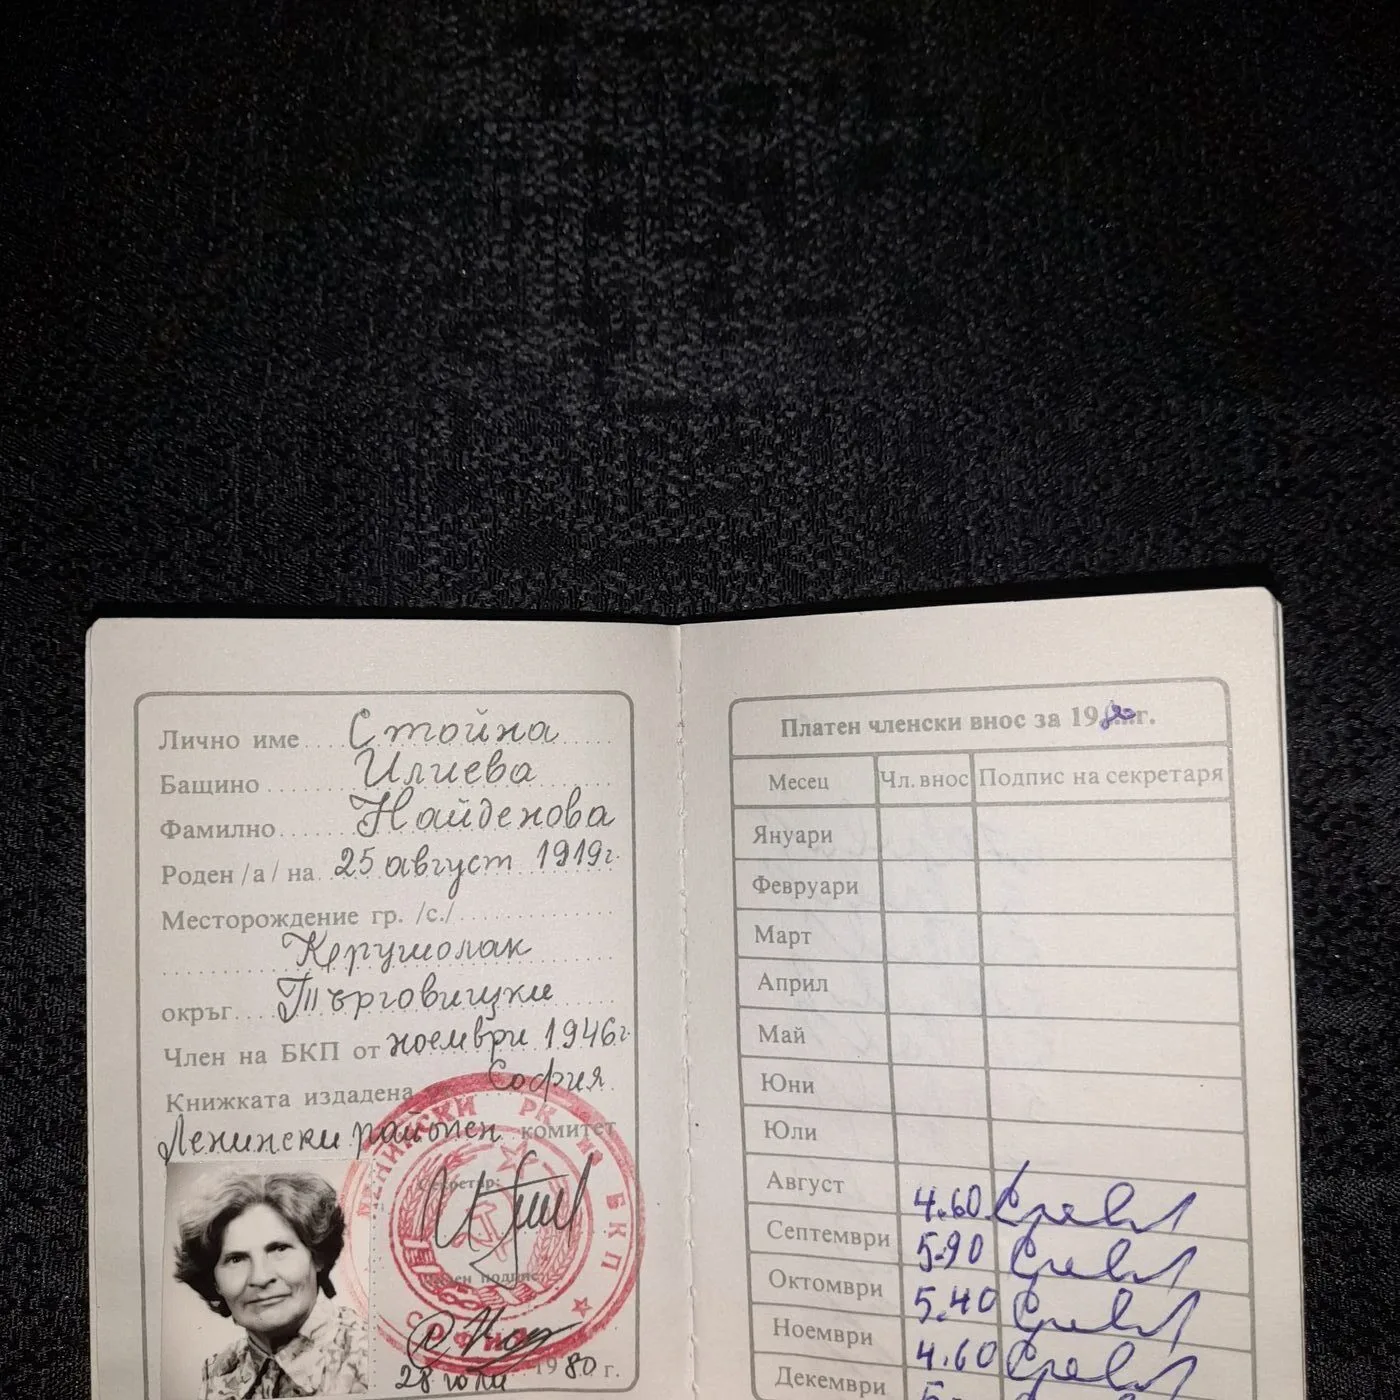 Лично име Стойна
Бащино Илиева
Фамилно Найденова
Роден /а/ на 25 август 1919г.
Месторождение гр. /с./
Крушолак
окръг Търговищки
Член на БКП от ноември 1946г.
Книжката издадена София
Ленински районен комитет
ЛЕНИНСКИ РК НА БКП
Секретар:
СОФИЯ
28 юли 1980 г.
Платен членски внос за 1980 г.
Месец Чл. внос Подпис на секретаря
Януари
Февруари
Март
Април
Май
Юни
Юли
Август 4.60
Септември 5.90
Октомври 5.40
Ноември 4.60
Декември